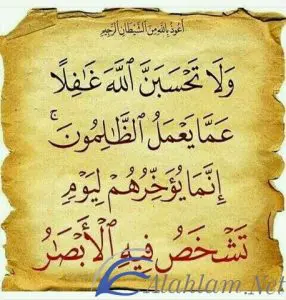 أعوذ بالله من الشيطان الرجيم
وَلَا تَحْسَبَنَّ ٱللَّهَ غَٰفِلًا
عَمَّا يَعْمَلُ ٱلظَّٰلِمُونَ ۚ
إِنَّمَا يُؤَخِّرُهُمْ لِيَوْمٍ
تَشْخَصُ فِيهِ ٱلْأَبْصَٰرُ
Alahlam.Net